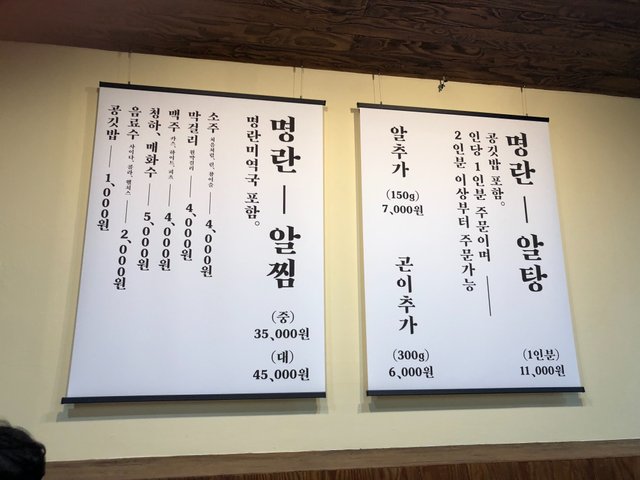 명란 — 알찜
(중)
35,000원
(대)
45,000원
명란미역국 포함。
소주 — 4,000원
막걸리 — 4,000원
맥주 카스, 하이트, 테라 — 4,000원
청하、매화수 — 5,000원
음료수 사이다, 콜라, 웰치스 — 2,000원
공깃밥 — 1,000원
명란 — 알탕
(1인분)
11,000원
공깃밥 포함。
인당 1인분 주문이며 —
2인분 이상부터 주문가능
알추가
(150g)
7,000원
곤이추가
(300g)
6,000원